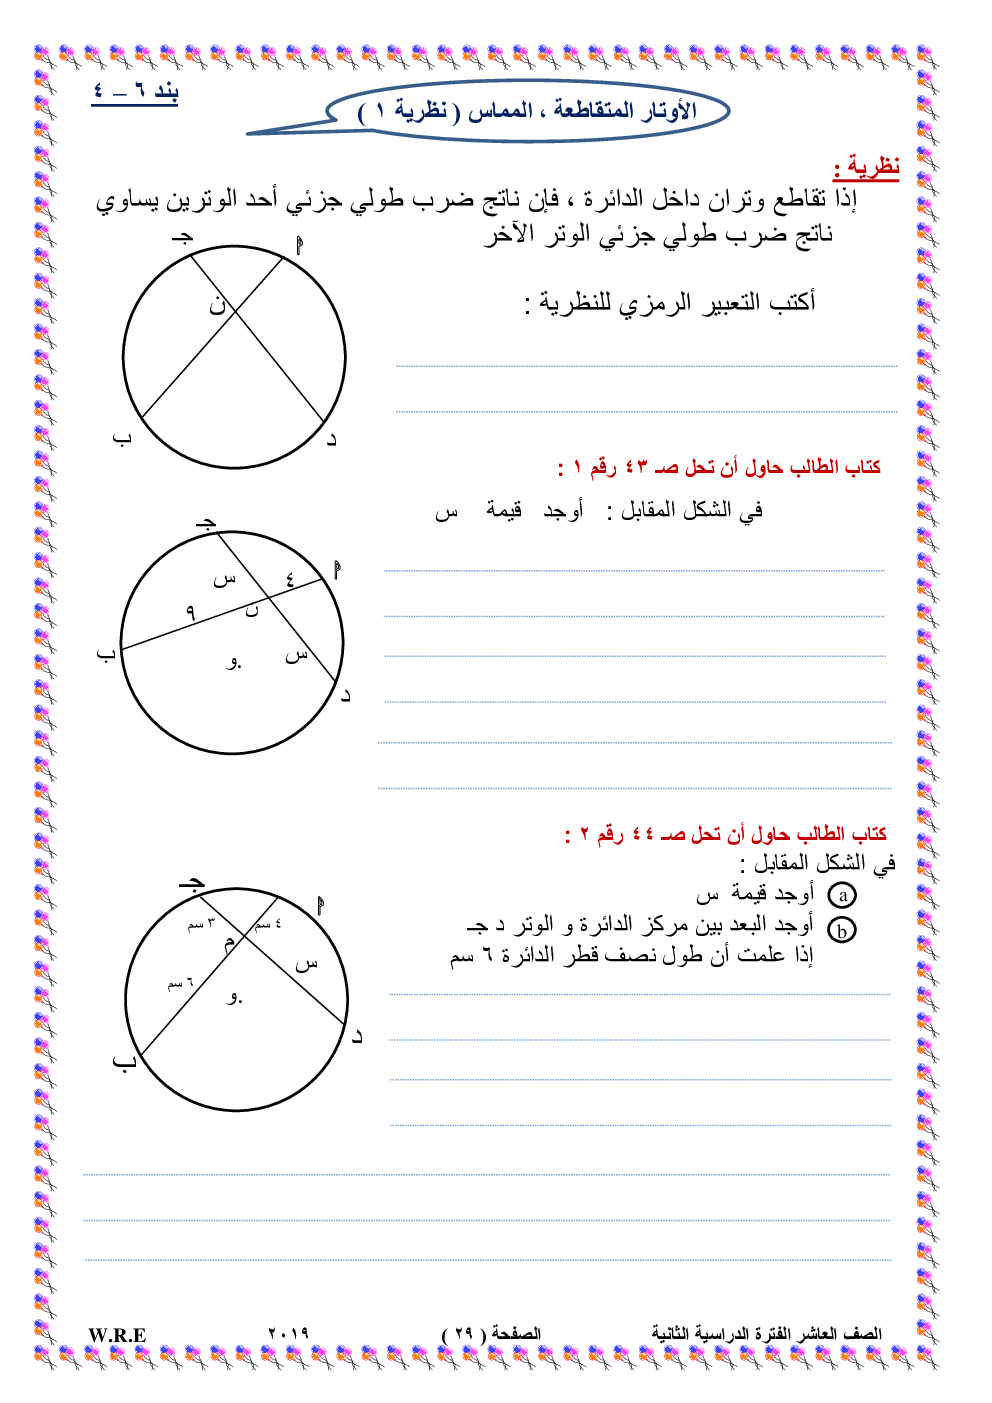 بند ٦ – ٤
الأوتار المتقاطعة ، المماس ( نظرية ١ )
نظرية :
إذا تقاطع وتران داخل الدائرة ، فإن ناتج ضرب طولي جزئي أحد الوترين يساوي
ناتج ضرب طولي جزئي الوتر الآخر
جـ
أ
ن
ب
د
أكتب التعبير الرمزي للنظرية :
كتاب الطالب حاول أن تحل صـ ٤٣ رقم ١ :
في الشكل المقابل : أوجد قيمة س
جـ
أ
س
٤
٩
ن
ب
و.
س
د
كتاب الطالب حاول أن تحل صـ ٤٤ رقم ٢ :
في الشكل المقابل :
a أوجد قيمة س
b أوجد البعد بين مركز الدائرة و الوتر د جـ
إذا علمت أن طول نصف قطر الدائرة ٦ سم
جـ
أ
٣ سم
٤ سم
م
س
٦ سم
و.
د
ب
الصف العاشر الفترة الدراسية الثانية الصفحة ( ٢٩ ) ٢٠١٩ W.R.E